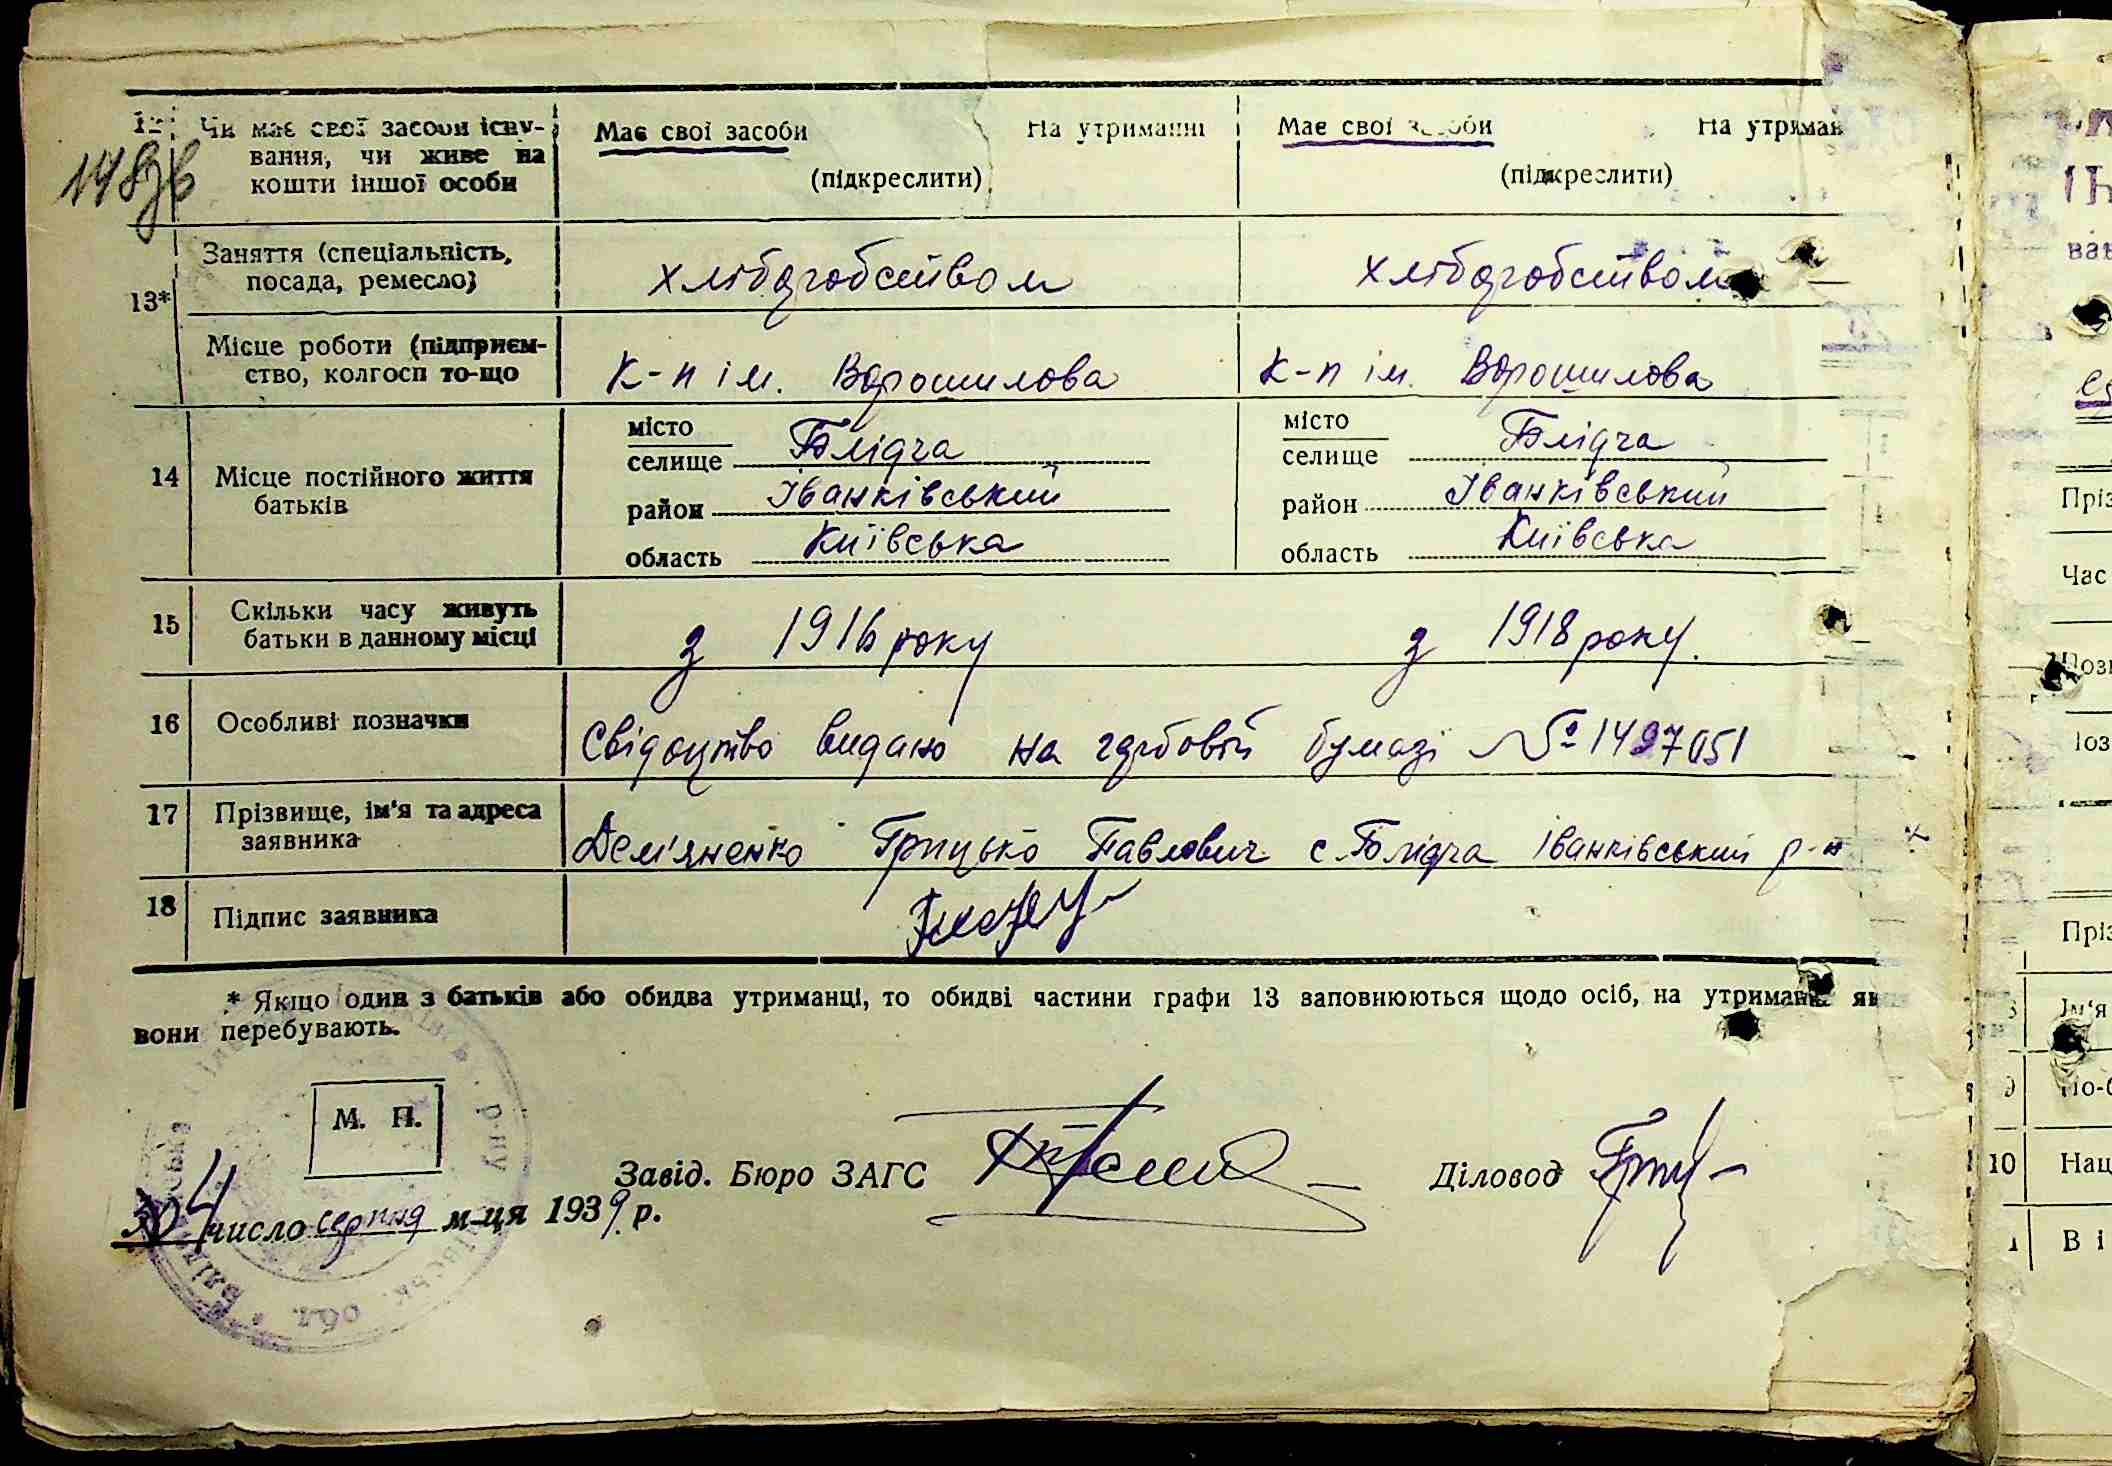 148зв
12 Чи має свої засоби існу-
вання, чи живе на
кошти іншої особи
Має свої засоби На утриманні
(підкреслити)
Має свої засоби На утриман
(підкреслити)
13*
Заняття (спеціальність,
посада, ремесло)
хліборобством
хліборобством
Місце роботи (підприєм-
ство, колгосп то-що
К-п ім. Ворошилова
К-п ім. Ворошилова
14 Місце постійного життя
батьків
місто
селище Блідча
район Іванківський
область Київська
місто
селище Блідча
район Іванківський
область Київська
15 Скільки часу живуть
батьки в данному місці
з 1916 року
з 1918 року.
16 Особливі позначки
Свідоцтво видано на гербовій бумазі № 1497051
17 Прізвище, ім'я та адреса
заявника
Дем'яненко Грицько Павлович с. Блідча Іванківський р-н
18 Підпис заявника
* Якщо один з батьків або обидва утриманці, то обидві частини графи 13 заповнюються щодо осіб, на утриманні як
вони перебувають.
М. П.
Завід. Бюро ЗАГС
Діловод
4 число серпня м-ця 1939 р.
р-ну
обл.
Пріз
Час
Пріз
Ім'я
9 По-б
10 Нац
Ві